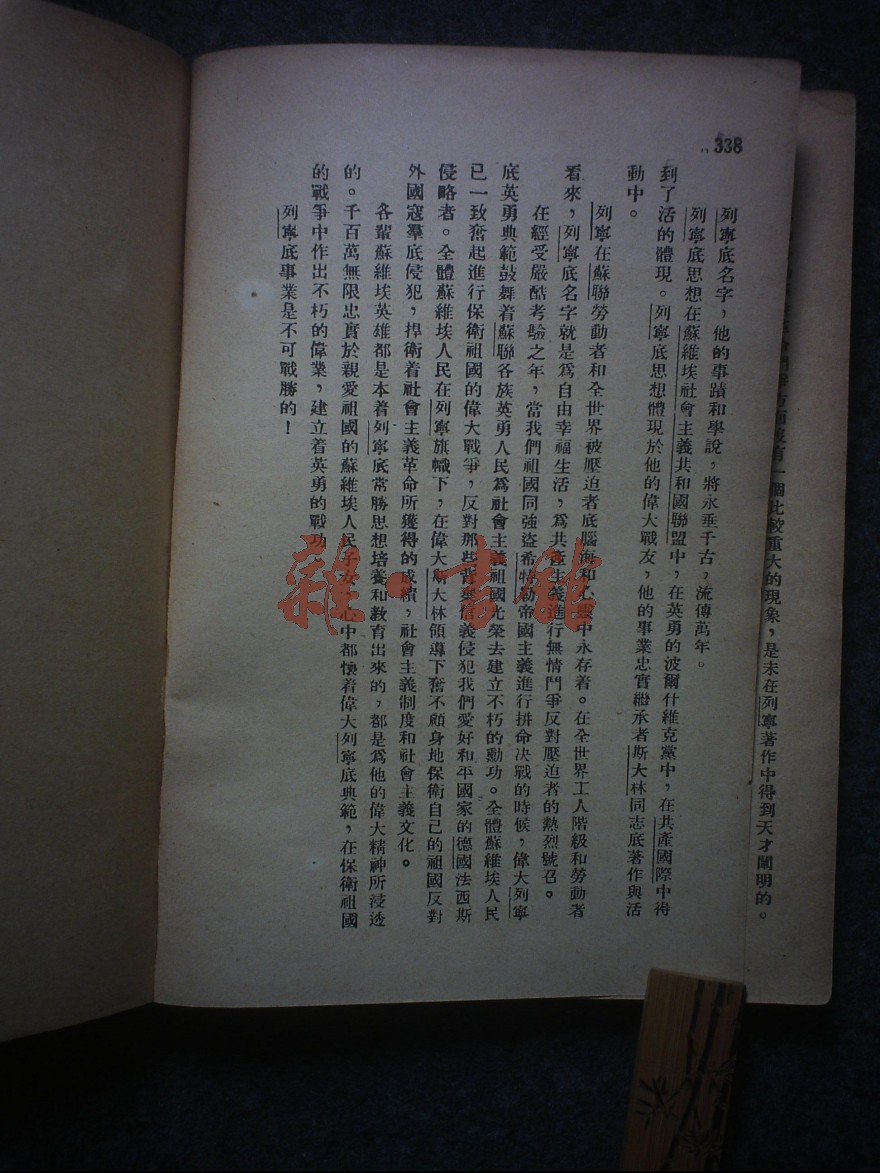 338
列寧底名字，他的事蹟和學說，將永垂千古，流傳萬年。
列寧底思想在蘇維埃社會主義共和國聯盟中，在英勇的波爾什維克黨中，在共產國際中得
到了活的體現。列寧底思想體現於他的偉大戰友，他的事業忠實繼承者斯大林同志底著作與活
動中。
列寧在蘇聯勞動者和全世界被壓迫者底腦海和心靈中永存着。在全世界工人階級和勞動者
看來，列寧底名字就是為自由幸福生活，為共產主義進行無情鬥爭反對壓迫者的熱烈號召。
在經受嚴酷考驗之年，當我們祖國同強盜希特勒帝國主義進行拼命決戰的時候，偉大列寧
底英勇典範鼓舞着蘇聯各族英勇人民為社會主義祖國光榮去建立不朽的勳功。全體蘇維埃人民
已一致奮起進行保衛祖國的偉大戰爭，反對那些背棄信義侵犯我們愛好和平國家的德國法西斯
侵略者。全體蘇維埃人民在列寧旗幟下，在偉大斯大林領導下奮不顧身地保衛自己的祖國反對
外國寇羣底侵犯，捍衛着社會主義革命所獲得的成績，社會主義制度和社會主義文化。
各輩蘇維埃英雄都是本着列寧底常勝思想培養和教育出來的，都是為他的偉大精神所浸透
的。千百萬無限忠實於親愛祖國的蘇維埃人民子女，心中都懷着偉大列寧底典範，在保衛祖國
的戰爭中作出不朽的偉業，建立着英勇的戰功。
列寧底事業是不可戰勝的！
一個比較重大的現象，是未在列寧著作中得到天才闡明的。
雜·書館